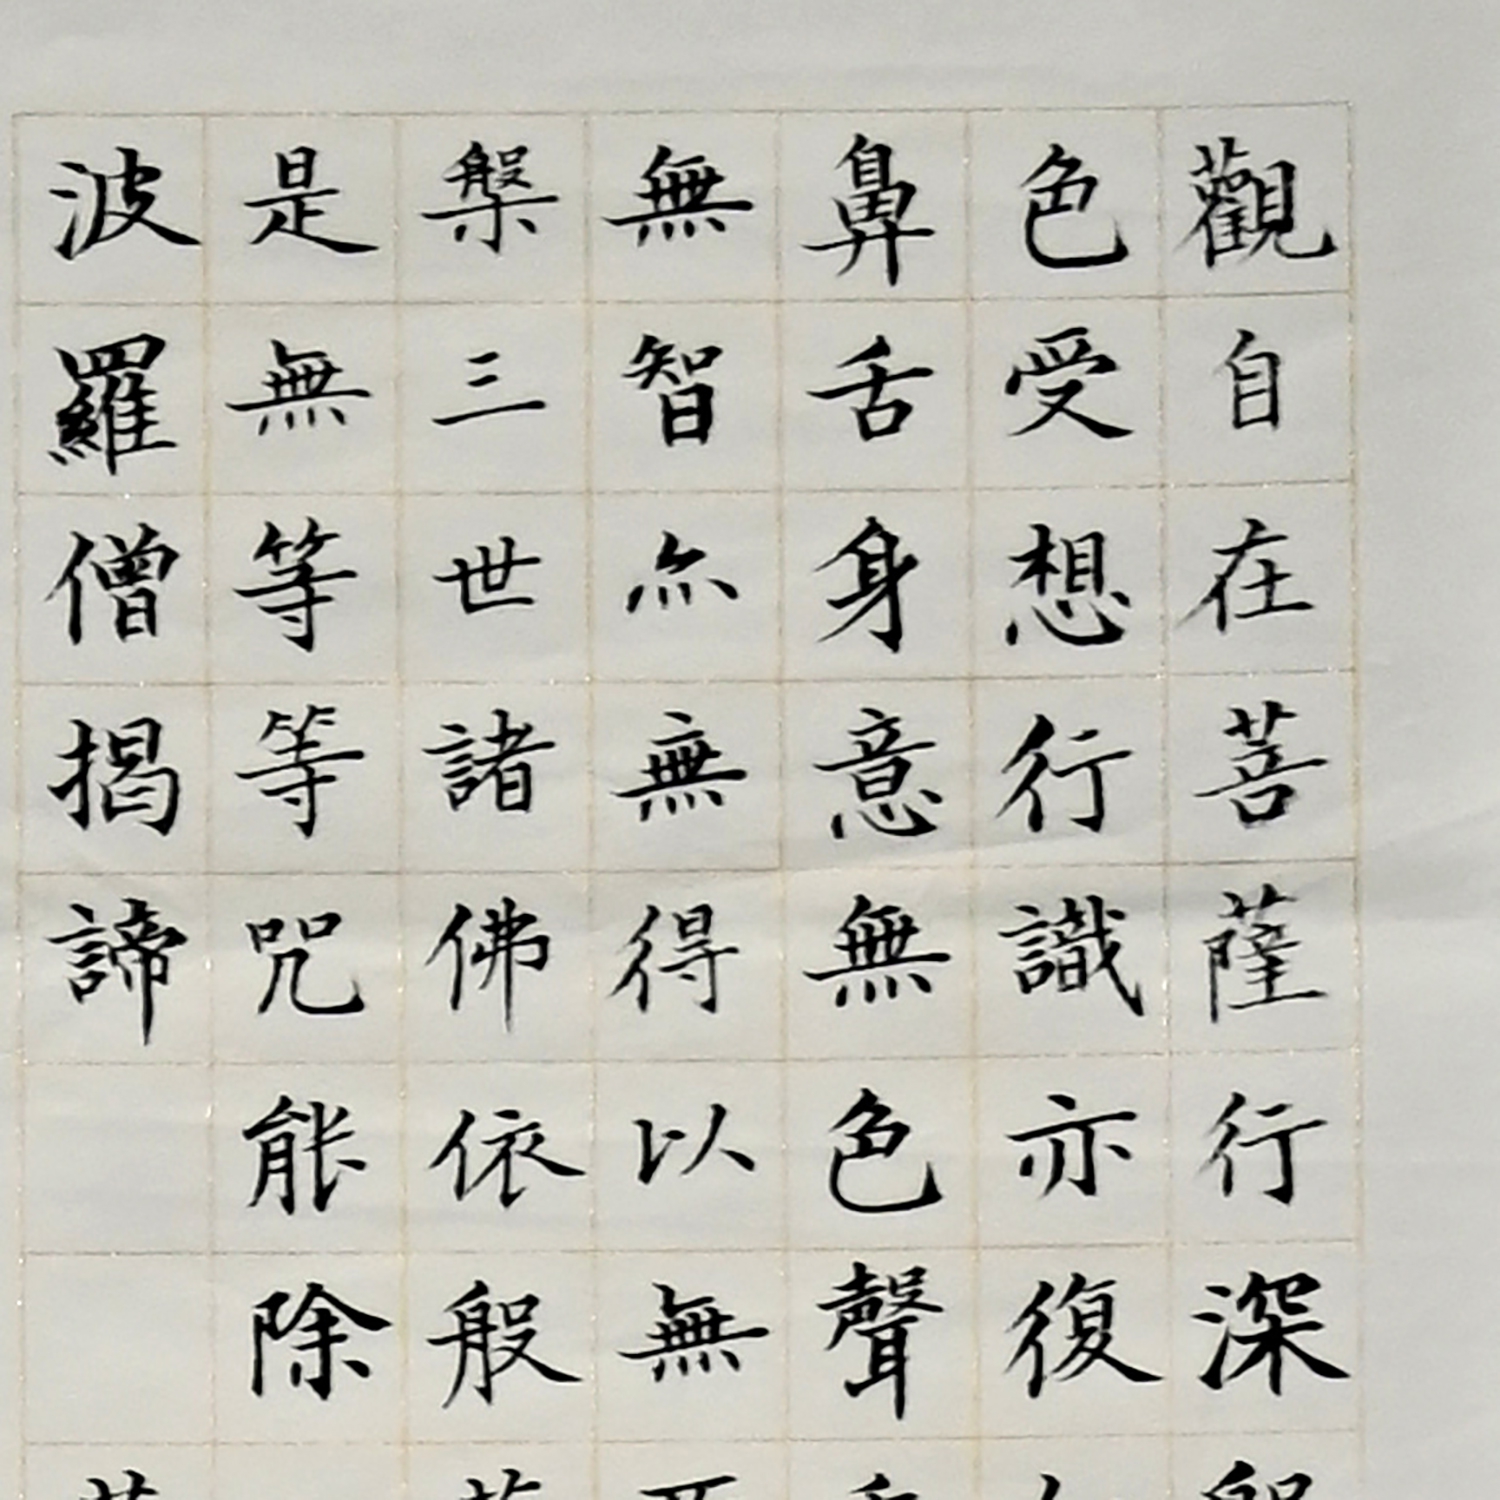 觀自在菩薩行深
色受想行識亦復
鼻舌身意無色聲
無智亦無得以無
槃三世諸佛依般
是無等等咒能除
波羅僧揭諦